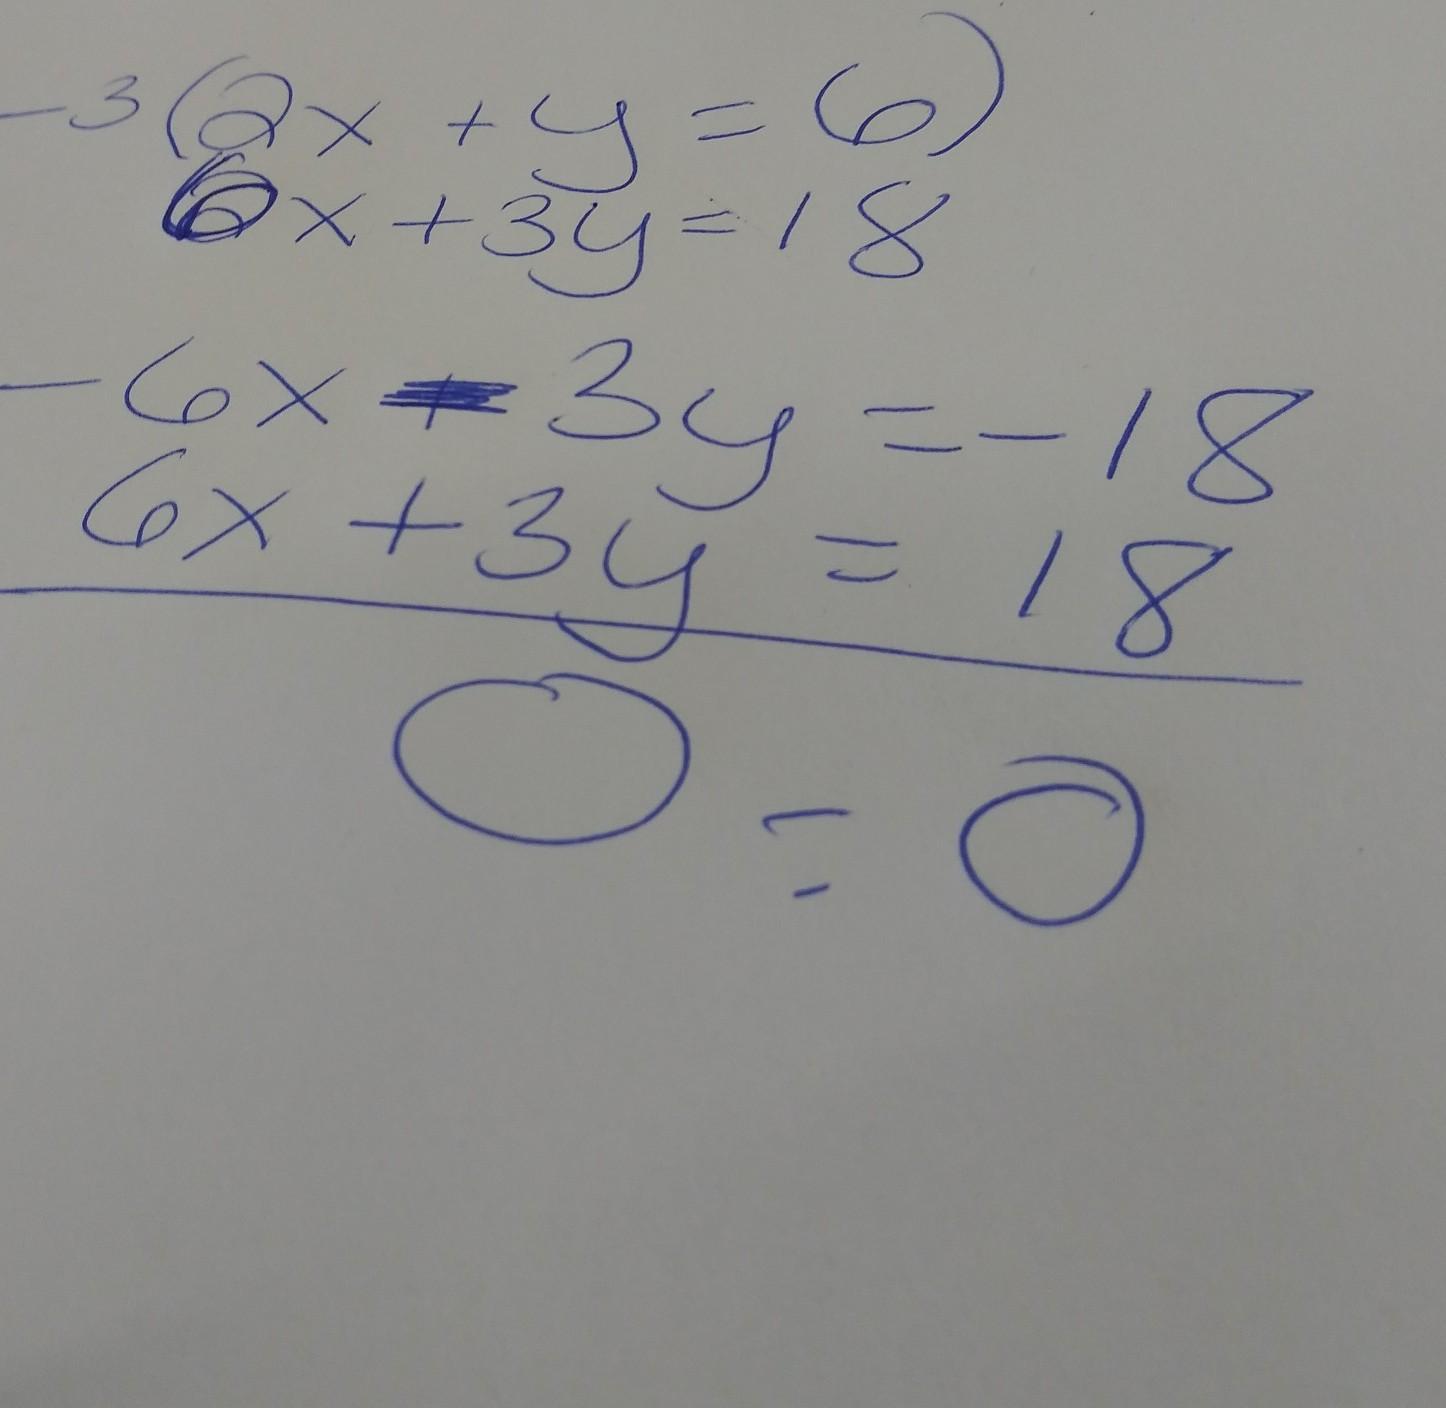 -3(2x + y = 6)
6x + 3y = 18
-6x - 3y = -18
6x + 3y = 18
0 = 0